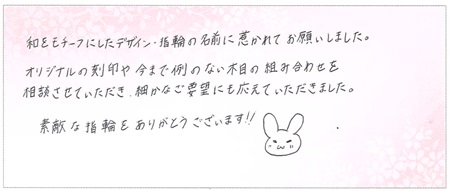 和をモチーフにしたデザイン・指輪の名前に惹かれてお願いしました。
オリジナルの刻印や今まで例のない木目の組み合わせを
相談させていただき、細かなご要望にも応えていただきました。
素敵な指輪をありがとうございます!!